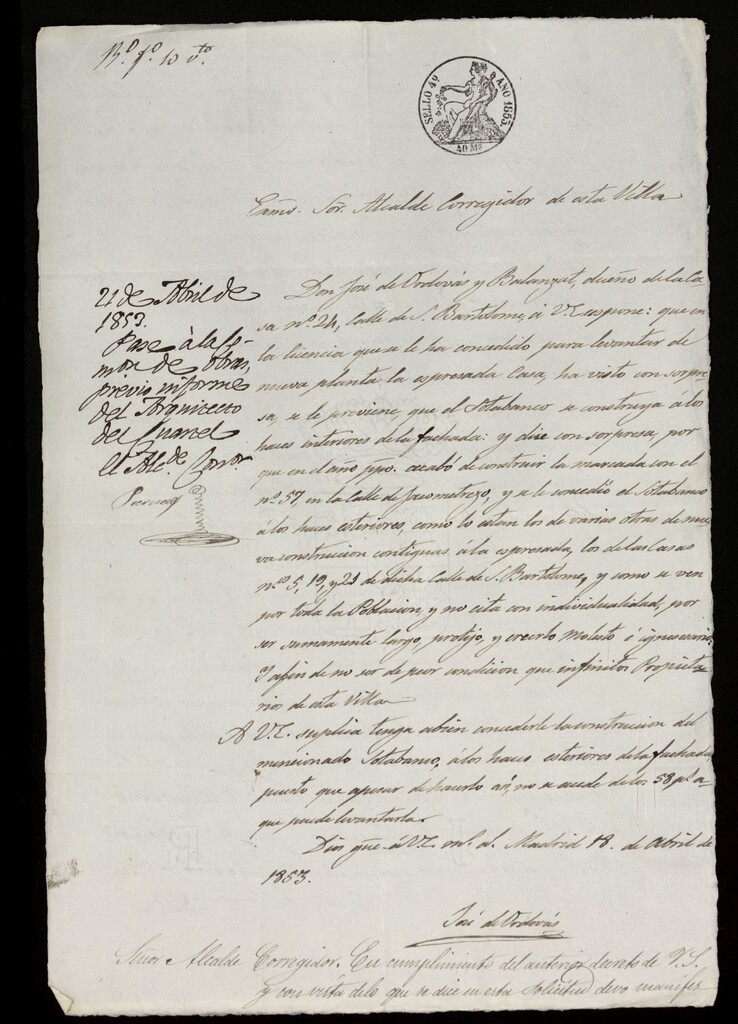 Rº fº 10 vto
SELLO 4º AÑO 1853.
40 Ms
Exmo. Sor. Alcalde Corregidor de esta Villa
21 de Abril de
1853.
Pase à la Co-
mon de obras,
previo informe
del Arquitecto
del Cuartel
El Alc.de Corror
Don José de Ordovás y Balanzat, dueño de la Ca-
sa nº 24, Calle de S. Bartolome, á V.E. espone: que en
la licencia que se le ha concedido para levantar de
nueva planta la espresada Casa, ha visto con sorpre-
sa, se le previene, que el Sotabanco se construya á los
haces interiores de la fachada: y dice con sorpresa, por
que en el año ppo. acabó de construir la marcada con el
nº 57, en la Calle de Jacometrezo, y se le concedió el Sotabanco
á los haces esteriores, como lo estan los de varias otras de nue-
va construccion contiguas á la espresada, los de las Casas
nos 5, 19, y 21 de dicha Calle de S. Bartolome, y como se ven
por toda la Poblacion, y no cita con individualidad, por
ser sumamente largo, prolijo, y creerlo molesto é ignecesario.
Y afin de no ser de peor condicion que infinitos Propieta-
rios de esta Villa
A V.E. suplica tenga abien concederle la construccion del
mencionado Sotabanco, á los haces esteriores de la fachada,
puesto que apesar de hacerlo asi, no se escede de los 58 ps. a-
que puede levantarla.
Dios gue. á V.E. ms. as. Madrid 18 de abril de
1853.
José de Ordovás
Señor Alcalde Corregidor. En cumplimiento del anterior decreto de V.S.
y con vista de lo que se dice en esta solicitud devo manifes-